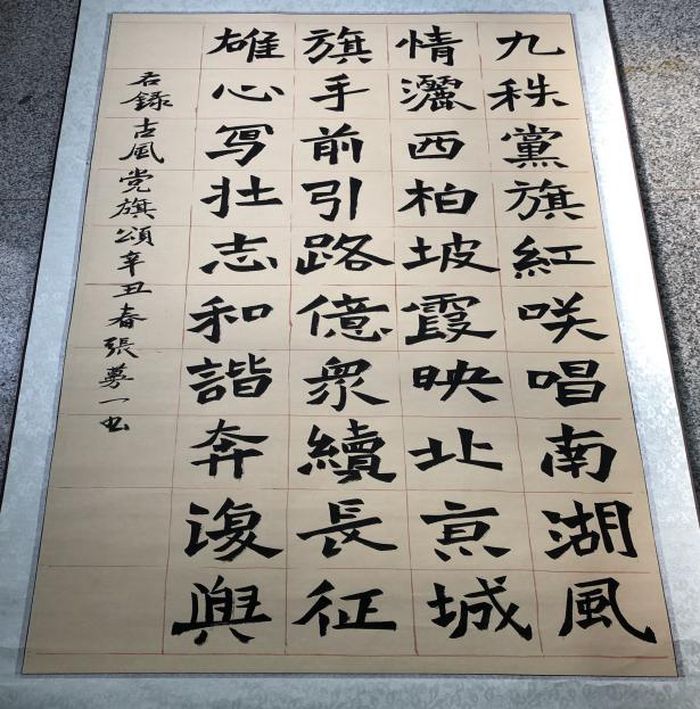 九秩黨旗紅咲唱南湖風
情灑西柏坡霞映北京城
旗手前引路億衆續長征
雄心寫壮志和諧奔復興
右録古風党旗頌辛丑春張夢一书